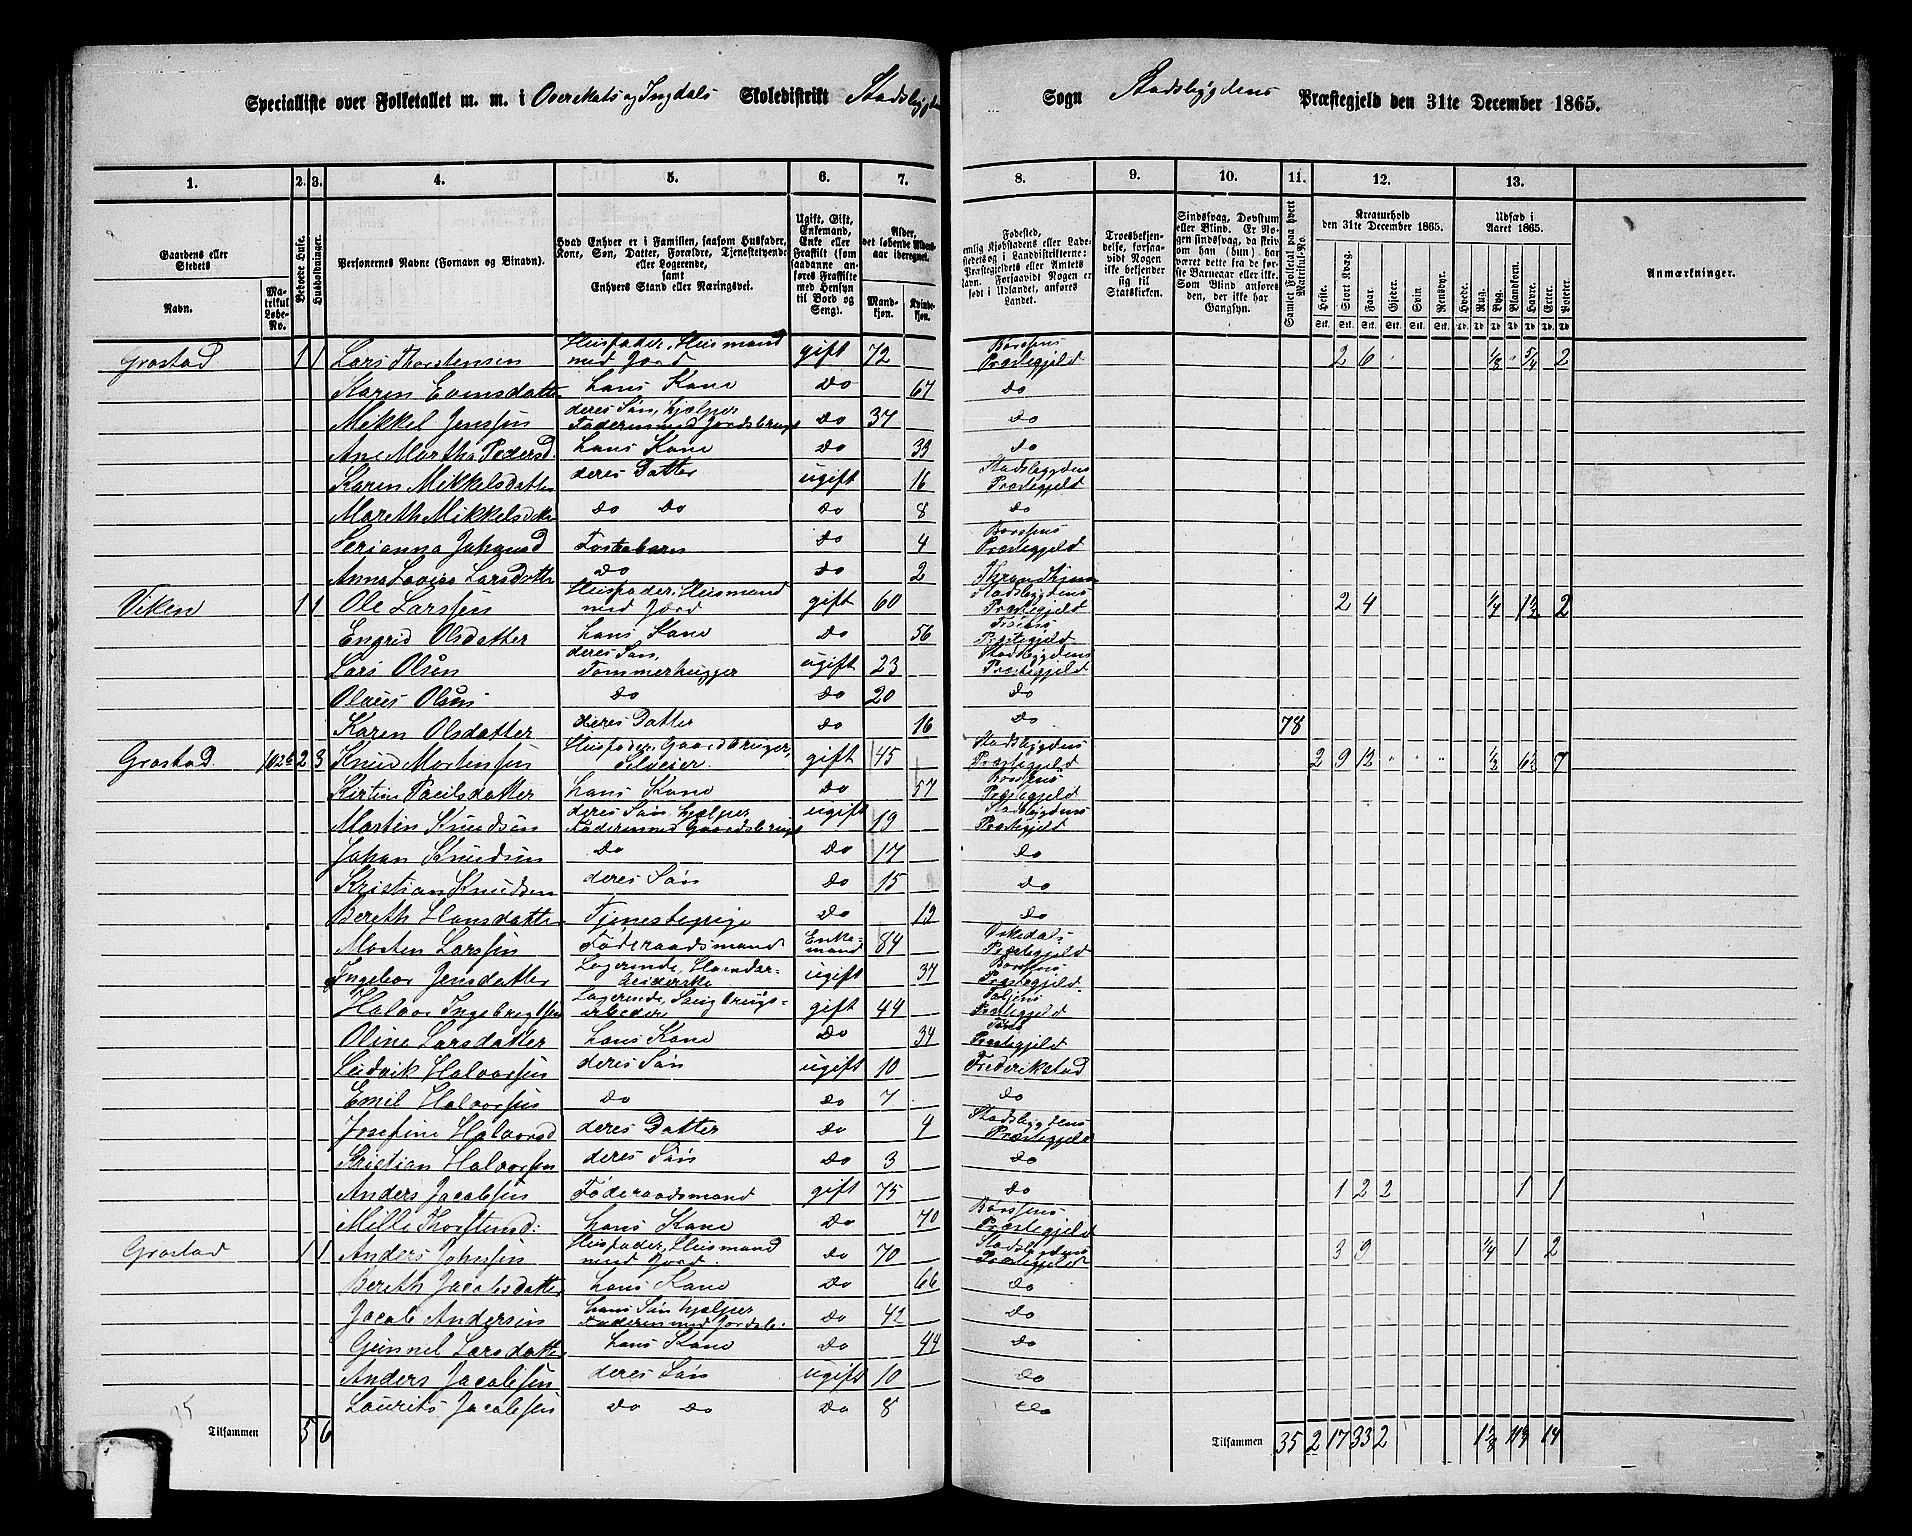 Specialliste over Folketallet m. m. i Overskats og Ingdals Skoledistrikt Stadsbygden Sogn Stadsbygdens Præstegjeld den 31te December 1865.
1. 2. 3. 4. 5. 6. 7. 8. 9. 10. 11. 12. 13.
Gaardens eller Stedets
Navn.
Matrikul Løbe-No.
Beboede Huse.
Husholdninger.
Personernes Navne (Fornavn og Binavn).
Hvad Enhver er i Familien, saasom Husfader, Kone, Søn, Datter, Forældre, Tjenestetyende eller Logerende, samt Enhvers Stand eller Næringsvei.
Ugift, Gift, Enkemand, Enke eller Fraskilt (som saadanne anføres Fraskilte med Hensyn til Bord og Seng).
Alder, det løbende Aldersaar iberegnet.
Mandkjøn.
Kvindekjøn.
Fødested,
Troesbekjendelse, forsaavidt Nogen ikke bekjender sig til Statskirken.
Sindssvag, Døvstum eller Blind. Er Nogen sindssvag, da skriv om han (hun) har været dette fra de første Barneaar eller ikke. Som Blind anføres den, der ikke har Gangsyn.
Samlet Folketal paa hvert Matrikul-No.
Kreaturhold den 31te December 1865.
Heste. Stort Kvæg. Faar. Gjeder. Svin. Rensdyr.
Udsæd i Aaret 1865.
Hvede. Rug. Byg. Blandkorn. Havre. Erter. Poteter.
Anmærkninger.
Grøstad 1 1 Lars Thorstensen Husfader, Husmand med Jord gift 72 Børsens Præstegjeld 2 6 1/8 5/4 2
Karen Evensdatter hans Kone do 67 do
Mikkel Jenssen deres Søn, hjælper Faderen med Jordsbruget do 37 do
Ane Martha Pedersd hans Kone do 33 do
Karen Mikkelsdatter deres Datter ugift 16 Stadsbygdens Præstegjeld
Mareth Mikkelsdtr do do do 8 do
Serianna Johansd Fosterbarn do 4 Børsens Præstegjeld
Anna Lovise Larsdatter do do 2 Throndhjem
Viken 1 1 Ole Larssen Husfader, Husmand med Jord gift 60 Stadsbygdens Præstegjeld 2 4 1/4 1 1/2 2
Engrid Olsdatter hans Kone do 56 Præstegjeld
Lars Olsen deres Søn, Tømmerhugger ugift 23 Stadsbygdens Præstegjeld
Olaus Olsen do do 20 do
Karen Olsdatter deres Datter do 16 do 78
Grøstad 102b 2 3 Knud Mortensen Husfader, Gaardbruger, Selveier gift 45 Stadsbygdens Præstegjeld 2 9 12 " " " 1/2 6 1/2 7
Kirstine Paulsdatter hans Kone do 57 Børsens Præstegjeld
Morten Knudsen deres Søn, hjælper Faderen med Gaardsbruget ugift 19 Stadsbygdens Præstegjeld
Johan Knudsen do do 17 do
Kristian Knudsen deres Søn do 15 do
Bereth Hansdatter Tjenestepige do 19 do
Morten Larssen Føderaadsmand Enkemand 84 Præstegjeld
Ingebor Jensdatter Logerende, Haandarbeiderske ugift 37 Børsens Præstegjeld
Halvor Ingebrigtsen Logerende, Saugbrugsarbeder gift 44 Præstegjeld
Oline Larsdatter hans Kone do 34 Præstegjeld
Ludvik Halvorsen deres Søn ugift 10 Frederikstad
Emil Halvorsen do do 7 do
Josefine Halvorsd deres Datter do 4 Stadsbygdens Præstegjeld
Kristian Halvorsen deres Søn do 3 do
Anders Jacobsen Føderaadsmand gift 75 do 1 2 2 1 1
Mille Thorstensd: hans Kone do 70 Børsens Præstegjeld
Grøstad 1 1 Anders Johnsen Husfader, Husmand med Jord do 70 Stadsbygdens Præstegjeld 3 9 1/4 1 2
Bereth Jacobsdatter hans Kone do 66 do
Jacob Andersen hans Søn hjælper Faderen med Jordsb: do 42 do
Gunnel Larsdatter hans Kone do 44 do
Anders Jacobsen deres Søn ugift 10 do
Laurits Jacobsen do do do 8 do
15
Tilsammen 5 6 Tilsammen 35 2 17 33 2 14